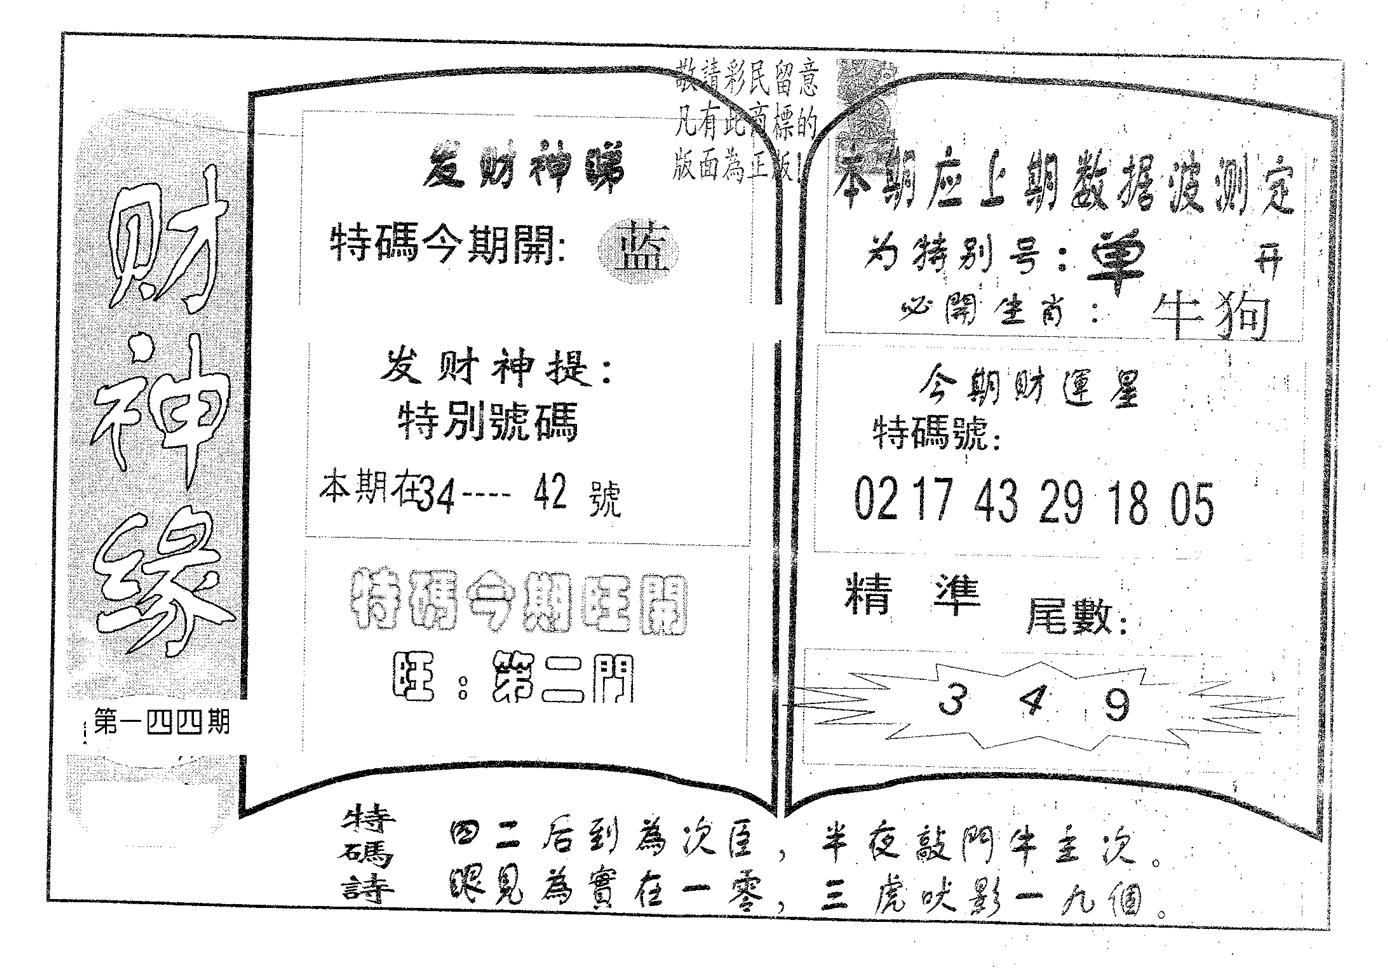 财神缘
第一四四期
敬請彩民留意
凡有此商標的
版面為正版!
发财神睇
特碼今期開: 蓝
发财神提:
特別號碼
本期在34---- 42 號
特碼今期旺開
旺: 第二門
本期应上期数据波测定
为特别号: 单 开
必開生肖: 牛狗
今期財運星
特碼號:
02 17 43 29 18 05
精準 尾數:
3 4 9
特碼詩
四二后到為次臣,半夜敲門牛主次。
眼見為實在一零,三虎吠影一九個。